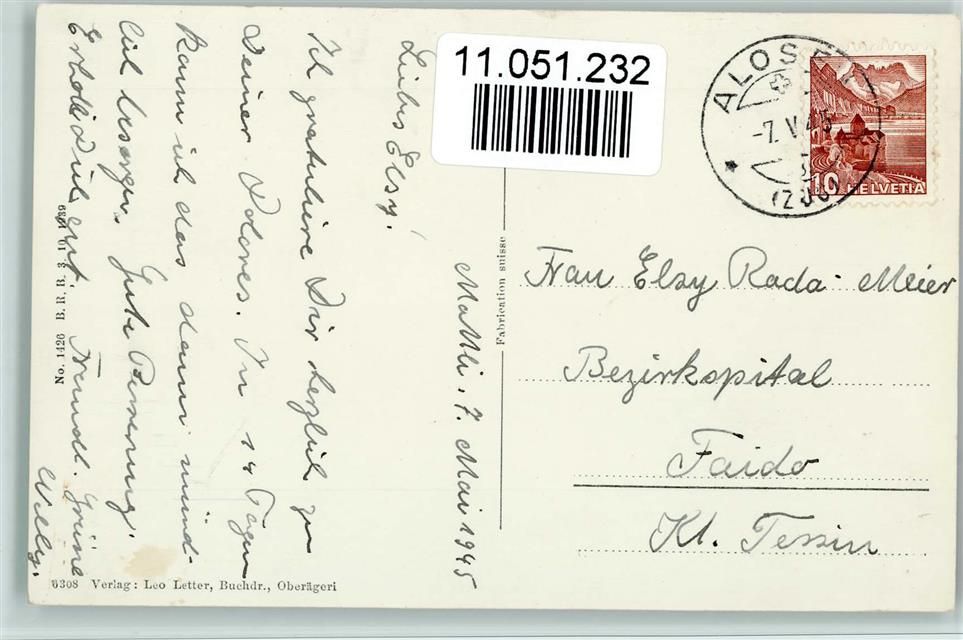 11.051.232
ALOS
-7.V.45
(ZUG)
10 HELVETIA
Mattli, 7. Mai 1945
Liebes Elsy!
Ich gratuliere Dir herzlich zu
Deiner Dolores. In 14 Tagen
kann ich das dann münd-
lich besorgen. Gute Besserung,
Erhole Dich gut, Freundl. Grüsse
Willy.
Frau Elsy Rada-Meier
Bezirkspital
Faido
Kt. Tessin
Fabrication suisse
No. 1426 B.R.B. 3. 10. 1939
6308 Verlag: Leo Letter, Buchdr., Oberägeri